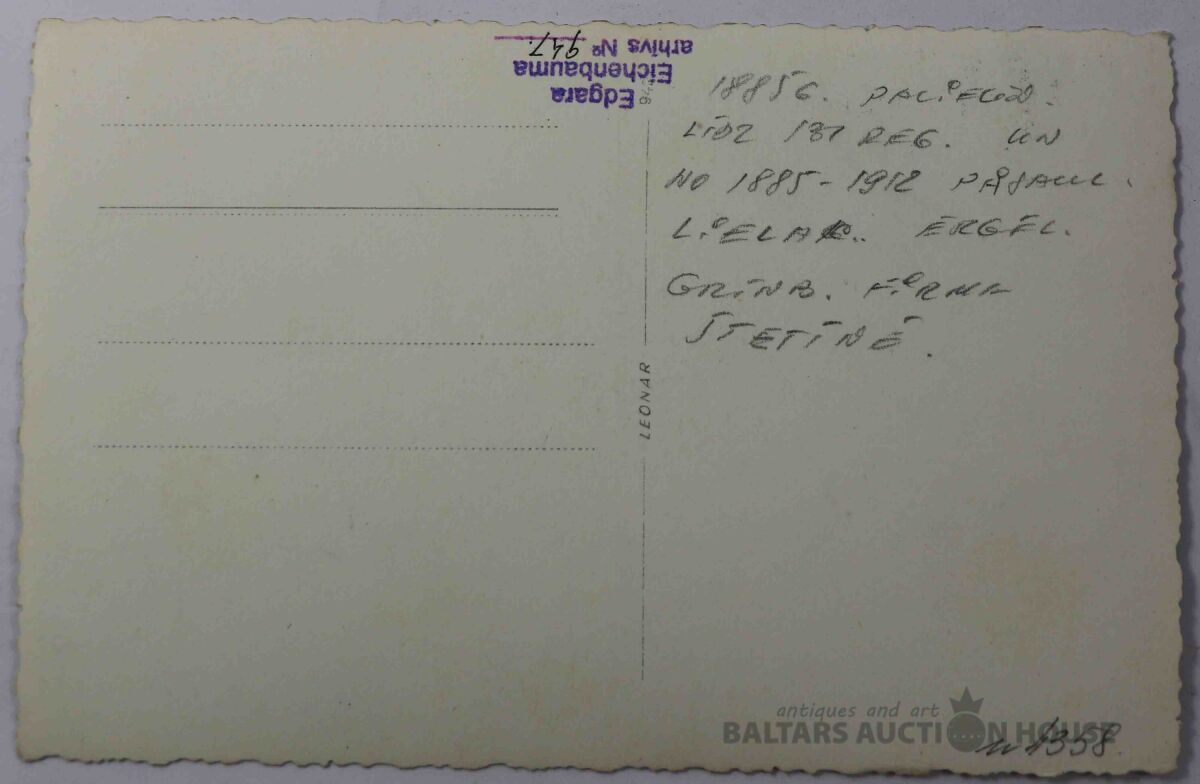 Edgara
Eichenbauma
arhīvs № 947.
1885G. PALIELIN.
LĪDZ 131 REG. UN
NO 1885-1912 PASAUL.
LIELĀK. ĒRĢEL.
GRĪNB. FIRMA
ŠTETĪNĒ.
LEONAR
antiques and art
BALTARS AUCTION HOUSE
1358